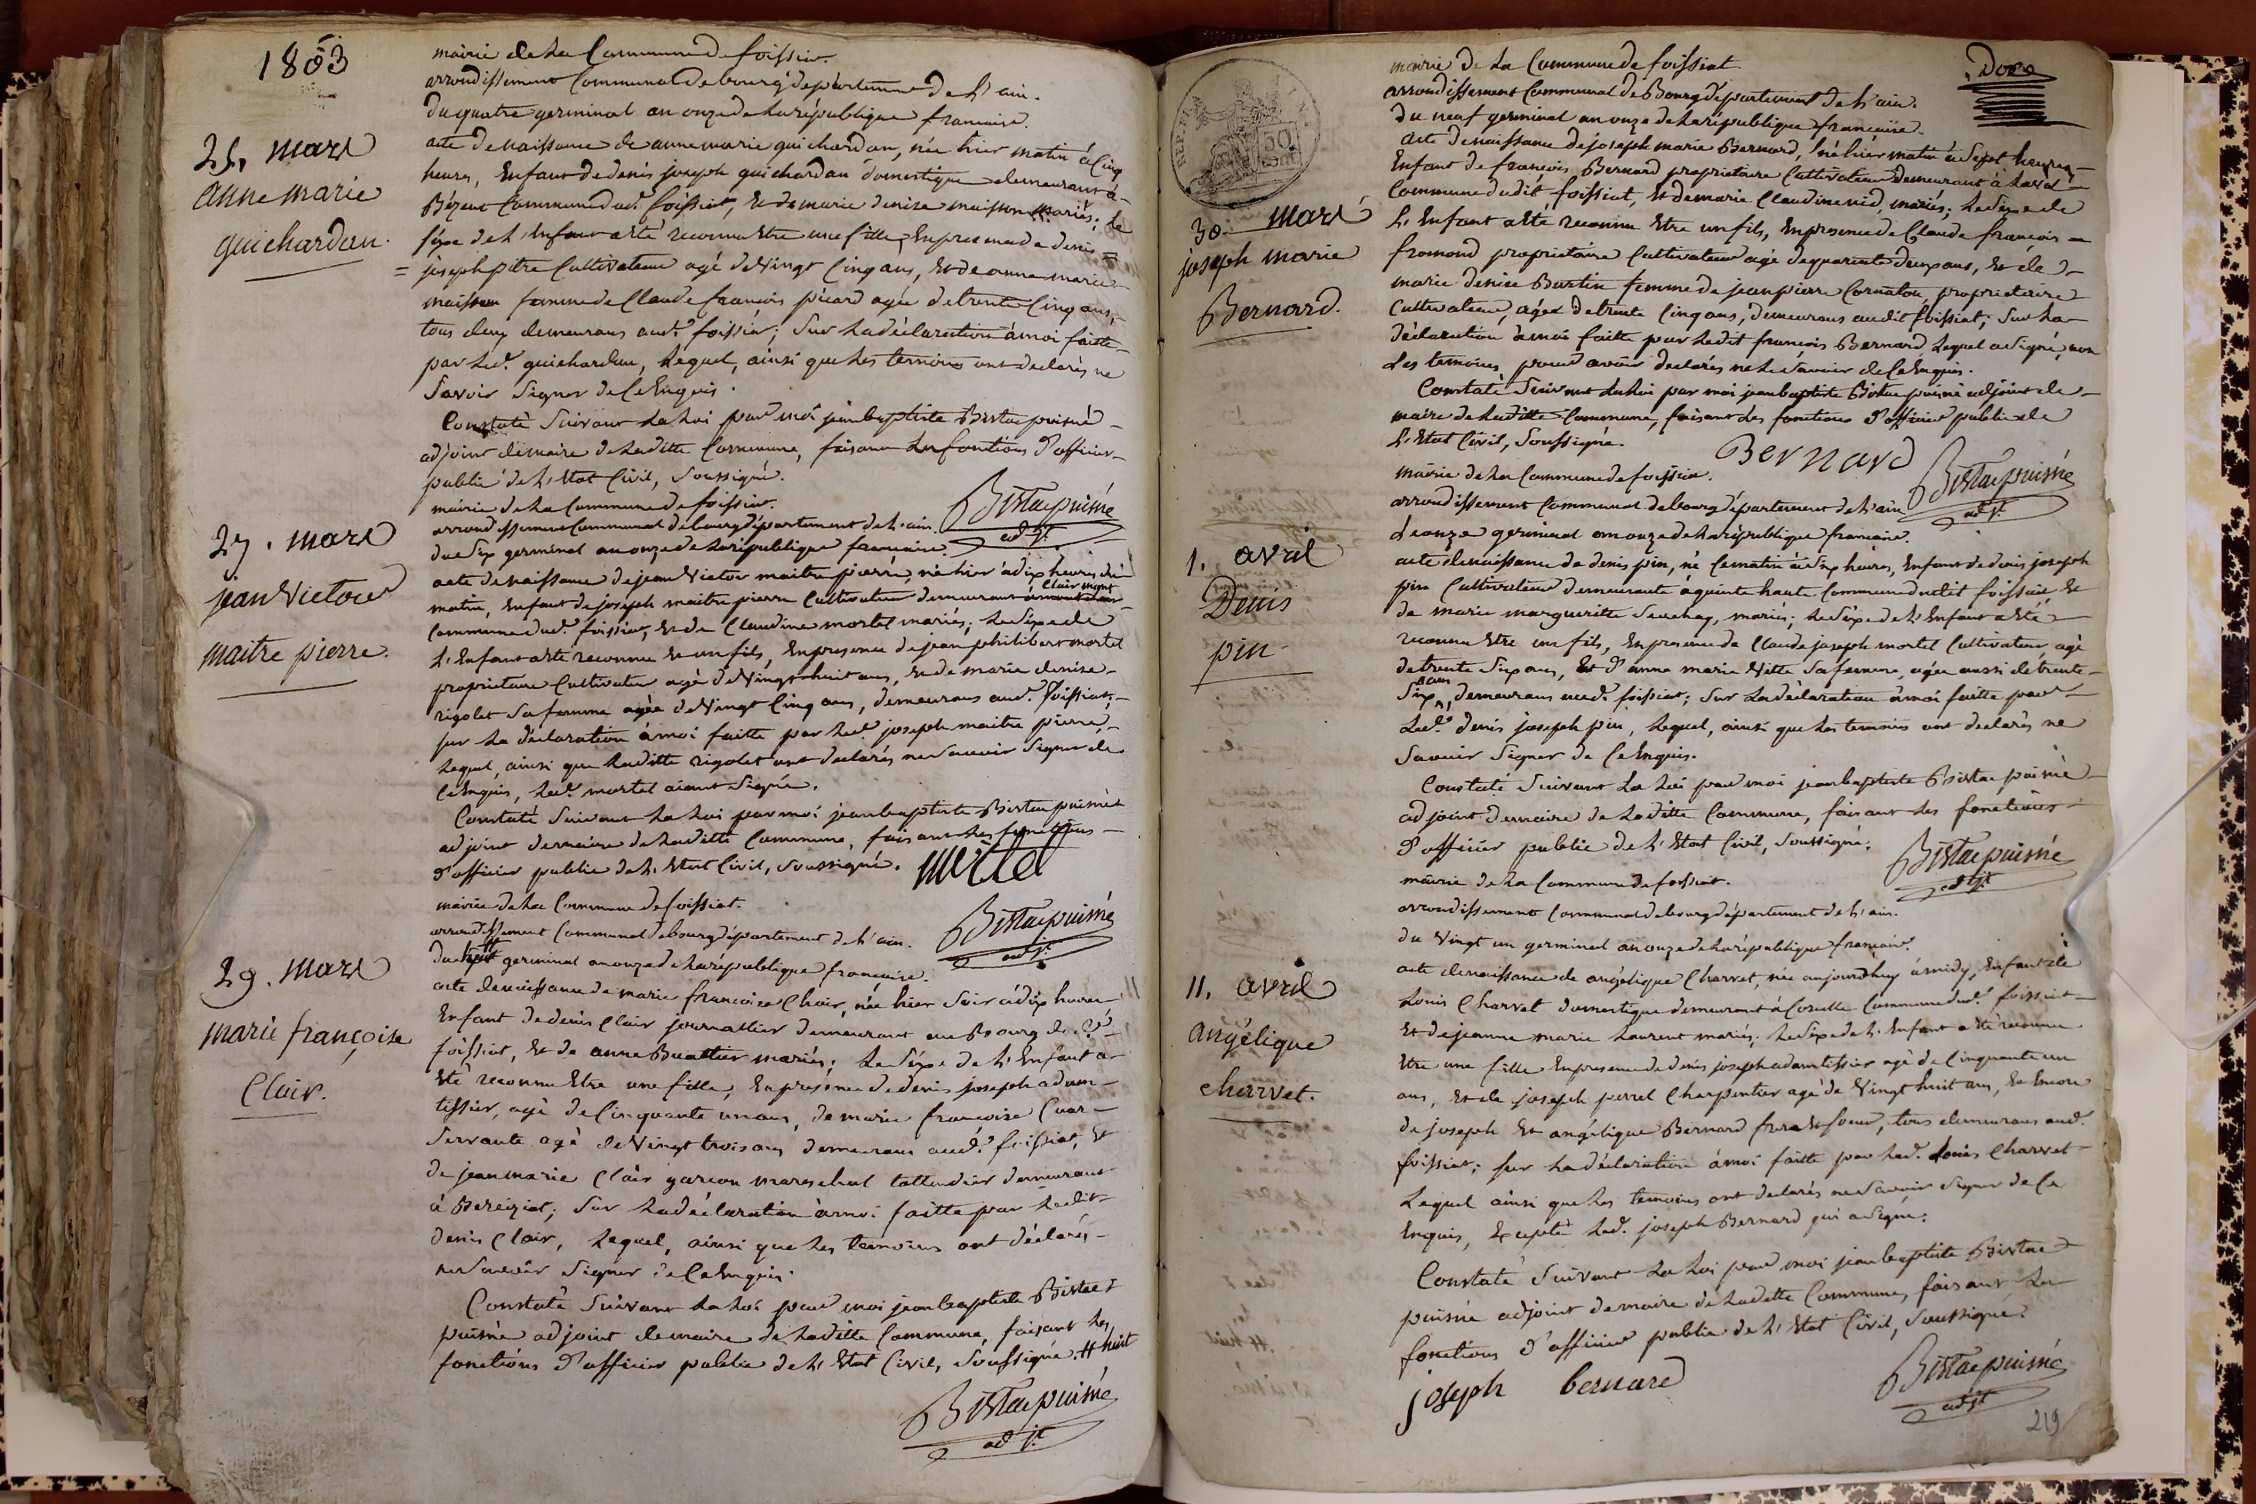 1803
mairie de La Commune de foissiat.
arrondissement Communal de bourg département de L'ain.
du quatre germinal an onze de La république francaise.
25. mars
anne marie
guichardan.
acte de naissance de anne marie guichardan, née hier matin à Cinq
heures, Enfant de denis joseph guichardan domestique demeurant à
Commune dud. foissiat, Et de marie denise maisson mariés; Le
séxe de L'Enfant a Eté reconnu Etre une fille, En presence de denis
joseph pitre Cultivateur agé de Vingt Cinq ans, Et de anne marie
maisson femme de Claude francois picard agée de trente Cinq ans,
tous deux demeurans aud. foissiat; Sur La déclaration à moi faitte
par Led. guichardan, Lequel, ainsi que Les temoins ont declarés ne
Savoir Signer de Ce Enquis.
Constaté Suivant La Loi par moi jean baptiste Bistac puisné
adjoint de maire de Laditte Commune, faisant Les fonctions d'officier
public de L'Etat Civil, Soussigné.
Bistac puisné
adjt.
mairie de La Commune de foissiat.
arrondissement Communal de bourg département de L'ain.
du Six germinal an onze de La république francaise.
27. mars
jean Victor
maitre pierre.
acte de naissance de jean Victor maitre pierre, né hier à dix heures du
matin, Enfant de joseph maitre pierre Cultivateur demeurant Clairmont
Commune dud. foissiat, Et de Claudine mortel mariés; Le Séxe de
L'Enfant a Eté reconnu Et un fils, En presence de jean philibert mortel
proprietaire Cultivateur agé de Vingt huit ans, Et de marie denise
rigolet Sa femme agée de Vingt Cinq ans, demeurans aud. foissiat;
Sur La déclaration à moi faitte par Led. joseph maitre pierre,
Lequel, ainsi que Laditte rigolet ont declarés ne Savoir Signer de
Ce Enquis, Led. mortel aiant Signé.
Constaté Suivant La Loi par moi jean baptiste Bistac puisné
adjoint de maire de Laditte Commune, faisant Les fonctions
d'officier public de L'Etat Civil, Soussigné.
mortel
Bistac puisné
adjt.
mairie de La Commune de foissiat.
arrondissement Communal de bourg département de L'ain.
du # germinal an onze de La république francaise.
29. mars
marie françoise
Clair.
acte de naissance de marie francoise Clair, née hier Soir à dix heures
Enfant de denis Clair journallier demeurant au Bourg de
foissiat, Et de anne Buattier mariés; Le Séxe de L'Enfant a
Eté reconnu Etre une fille, En presence de denis joseph adam
tissier, agé de Cinquante un ans, de marie francoise
Servante agé de Vingt trois ans demeurans aud. foissiat, Et
de jean marie Clair garcon mareschal tallendier demeurant
à Bereiziat; Sur La déclaration à moi faitte par Ledit
denis Clair, Lequel, ainsi que Les temoins ont déclarés
ne Savoir Signer de Ce Enquis.
Constaté Suivant La Loi par moi jean baptiste Bistac
puisné adjoint de maire de Laditte Commune, faisant Les
fonctions d'officier public de L'Etat Civil, Soussigné. # huit
Bistac puisné
adjt.
mairie de La Commune de foissiat
arrondissement Communal de Bourg département de L'ain.
du neuf germinal an onze de La république francaise.
30. mars
joseph marie
Bernard.
acte de naissance de joseph marie Bernard, né hier matin à Sept heures,
Enfant de francois Bernard proprietaire Cultivateur demeurant à
Commune dudit foissiat, Et de marie Claudine nid, mariés; Le Séxe de
L'Enfant a Eté reconnu Etre un fils, En presence de Claude francois
fromond proprietaire Cultivateur agé de quarante deux ans, Et de
marie denise Burtin femme de jean pierre Cornaton, proprietaire
Cultivateur, agée de trente Cinq ans, demeurans audit foissiat; Sur La
déclaration à moi faitte par Ledit francois Bernard, Lequel a Signé, non
Les temoins, pour avoir declarés ne Le Savoir de Ce Enquis.
Constaté Suivant La Loi par moi jean baptiste Bistac puisné adjoint de
maire de Laditte Commune, faisant Les fonctions d'officier public de
L'Etat Civil, Soussigné.
Bernard
Bistac puisné
adjt.
mairie de La Commune de foissiat.
arrondissement Communal de bourg département de L'ain
d'onze germinal an onze de La république francaise.
1. avril
Denis
pin
acte de naissance de denis pin, né Ce matin à Six heures, Enfant de denis joseph
pin Cultivateur demeurant à quinte haute Commune dudit foissiat Et
de marie margueritte, mariés; Le Séxe de L'Enfant a Eté
reconnu Etre un fils, En presence de Claude joseph mortel Cultivateur agé
de trente Six ans, Et d'anne marie Vitte Sa femme, agée aussi de trente
Six ans, demeurans aud. foissiat; Sur La déclaration à moi faitte par
Led. denis joseph pin, Lequel, ainsi que Les temoins ont declarés ne
Savoir Signer de Ce Enquis.
Constaté Suivant La Loi par moi jean baptiste Bistac puisné
adjoint de maire de Laditte Commune, faisant Les fonctions
d'officier public de L'Etat Civil, Soussigné.
Bistac puisné
adjt
mairie de La Commune de foissiat.
arrondissement Communal de bourg département de L'ain.
du Vingt un germinal an onze de La république francaise.
11. avril
angélique
charvet.
acte de naissance de angélique Charvet, née aujourdhuy à midy, Enfant de
Louis Charvet domestique demeurant à Commune dud. foissiat
Et de jeanne marie Laurent mariés; Le Séxe de L'Enfant a Eté reconnu
Etre une fille En presence de denis joseph adam tissier agé de Cinquante un
ans, Et de joseph perret Charpentier agé de Vingt huit ans, Et Encore
de joseph Et angélique Bernard frere Et Soeur, tous demeurans aud.
foissiat; Sur La déclaration à moi faitte par Led. Louis Charvet
Lequel ainsi que Les temoins ont declarés ne Savoir Signer de Ce
Enquis, Excepté Led. joseph Bernard qui a Signé.
Constaté Suivant La Loi par moi jean baptiste Bistac
puisné adjoint de maire de Laditte Commune, faisant Les
fonctions d'officier public de L'Etat Civil, Soussigné.
joseph bernard
Bistac puisné
adjt
219